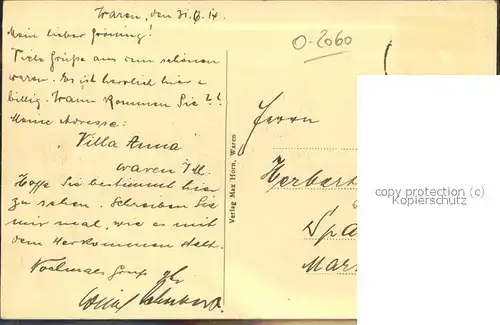 Waren, den 31.
Mein lieber
Viele Grüße aus dem schönen
Waren. Es ist herrlich hier u
billig. Wann kommen Sie??
Meine Adresse:
Villa Anna
Waren
Hoffe Sie bestimmt hier
zu sehen. Schreiben Sie
mir mal, wie es mit
dem Herkommen steht.
Nochmals Gruß
O-2060
Verlag Max Horn, Waren
Herrn
Herbert
Spa
Mar
copyright (c) by
Kopierschutz